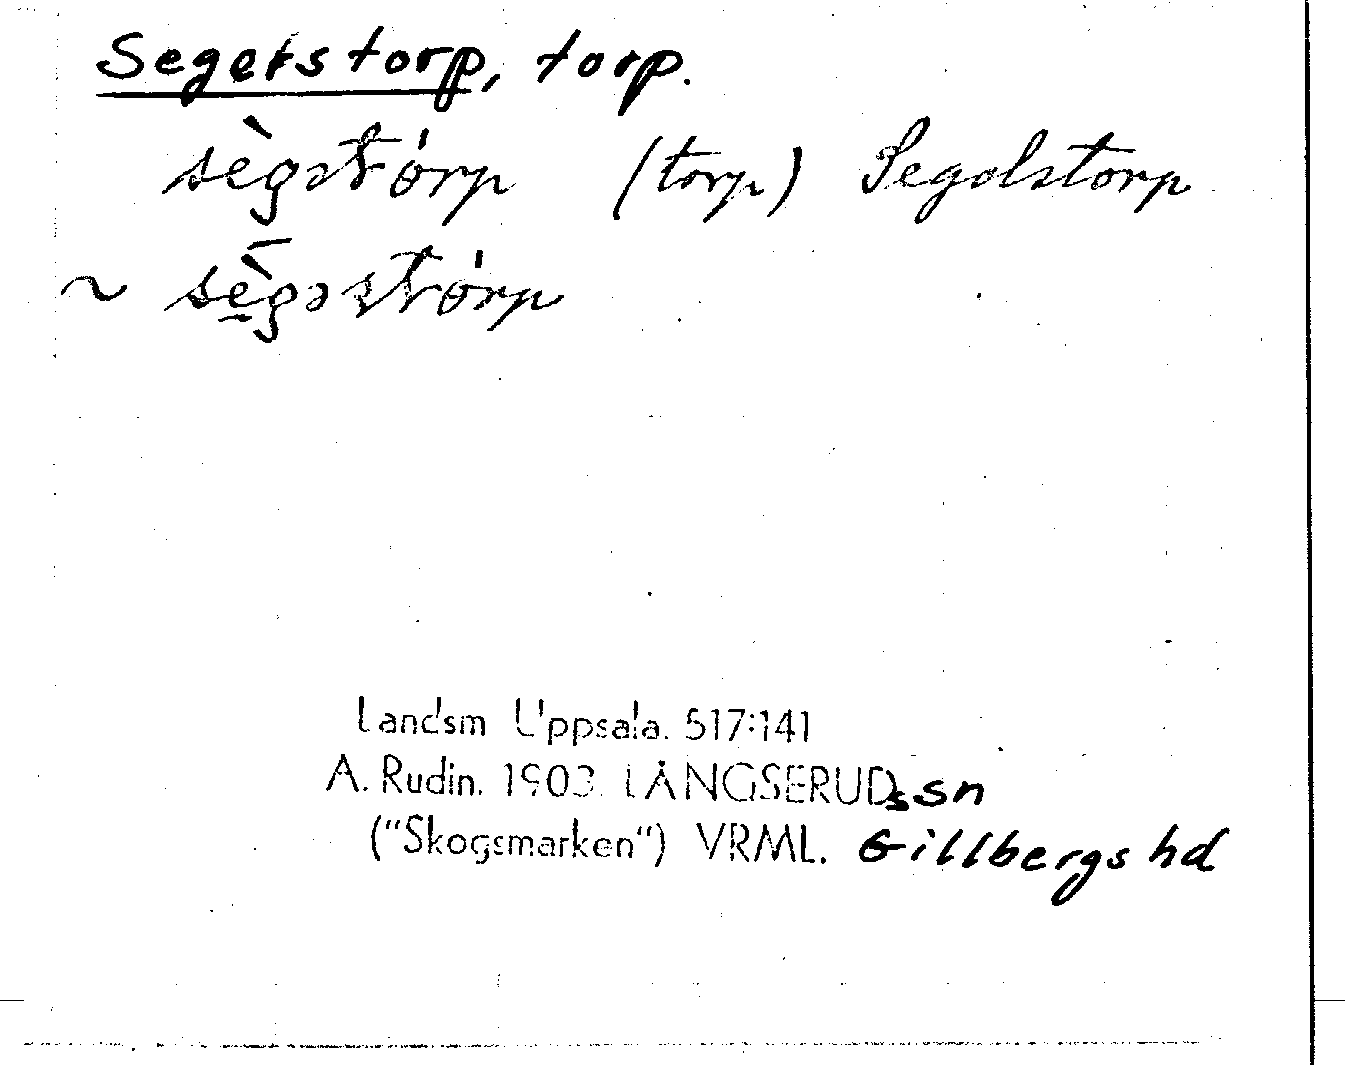 Segerstorp, torp.
sègstórp (torp) Segolstorp
~ sègəstórp
Landsm Uppsala. 517:141
A. Rudin. 1903. LÅNGSERUDs sn
("Skogsmarken") VRML. Gillbergs hd